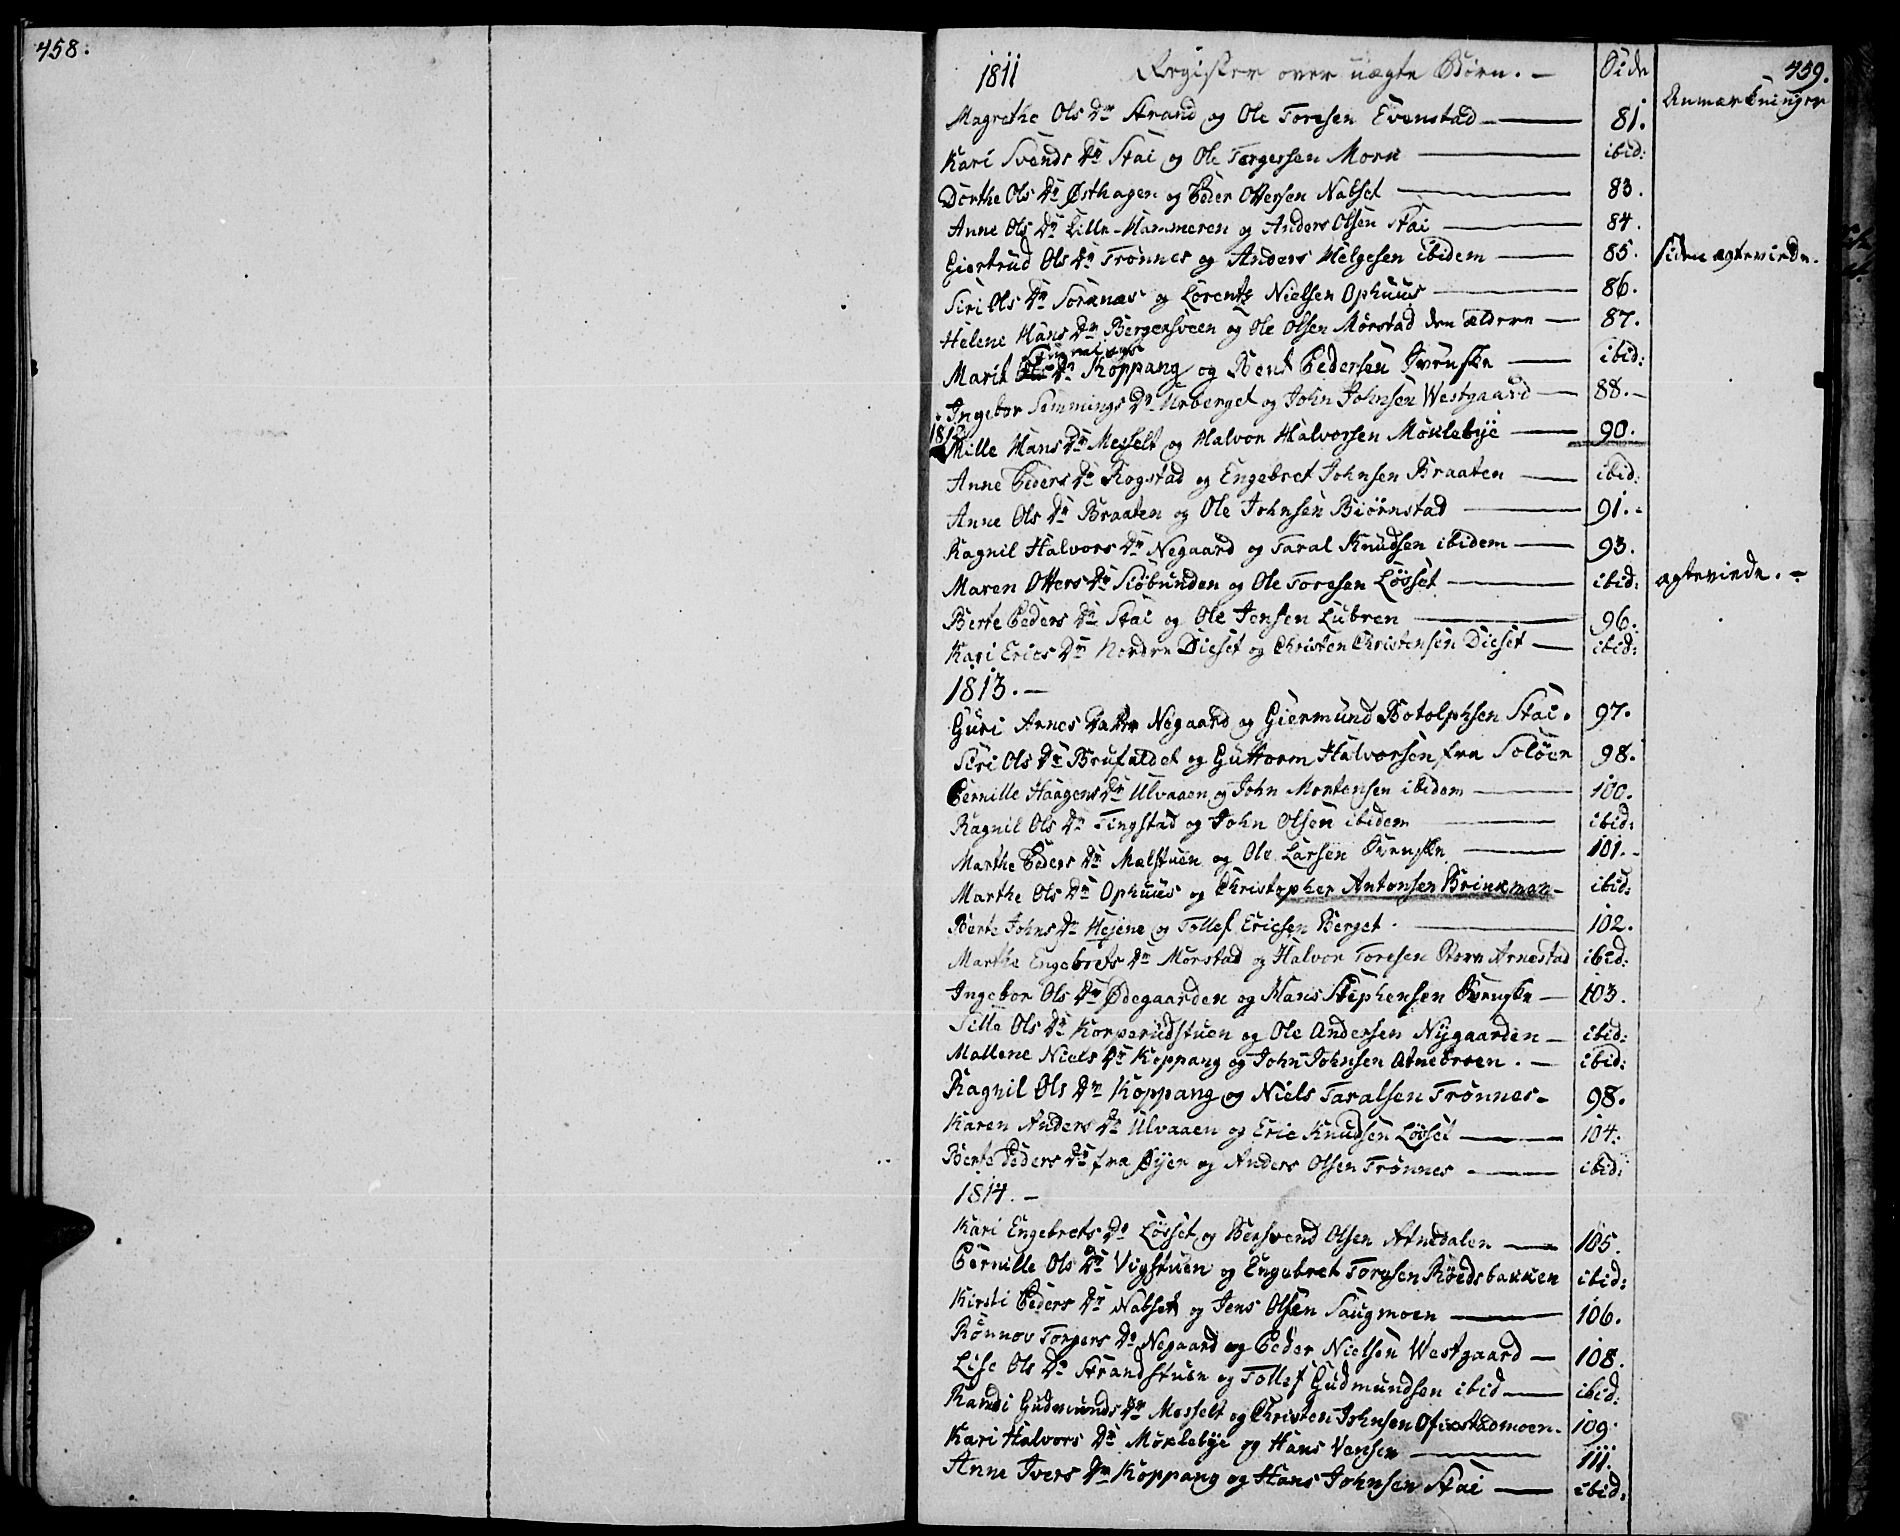 458:
459.
1811 Register over uægte Børn. - Side
Anmærkninger
Magrethe Ols Dr Strand og Ole Toresen Evenstad - 81.
Kari Svends Dr Stai og Ole Torgersen Morn - ibid:
Dorthe Ols Dr Østhagen og Peder Ottersen Nabset - 83.
Anne Ols Dr Lille-Hammeren og Anders Olsen Stai - 84.
Giertrud Ols Dr Trønnes og Anders Helgesen ibidem - 85. siden ægteviede.
Siri Ols Dr Sornæs og Lorentz Nielsen Ophuus - 86.
Helene Hans Dr Bergersveen og Ole Olsen Mørstad den ældere - 87.
Marit Dr Koppang og Bent Pedersen Svenske - ibid:
Ingebor Semmings Dr Urberget og John Johnsen Westgaard - 88. -
1812
Mille Hans Dr Messelt og Halvor Halvorsen Møklebye - 90.
Anne Peders Dr Rogstad og Engebret Johnsen Braaten - ibid:
Anne Ols Dr Braaten og Ole Johnsen Biørnstad - 91. -
Ragnil Halvors Dr Negaard og Taral Knudsen ibidem - 93.
Maren Otters Dr Siøbunden og Ole Toresen Løsset - ibid: ægteviede. -
Berte Peders Dr Stai og Ole Jensen Lubren - 96.
Kari Erics Dr Nordre Dieset og Christen Christensen Dieset - ibid:
1813. -
Guri Arnes Datter Negaard og Giermund Botolphsen Stai. 97.
Siri Ols Dr Brufaldet og Guttorm Halvorsen fra Soløer 98.
Pernille Haagens Dr Ulvaaen og John Mortensen ibidem - 100.
Ragnil Ols Dr Tingstad og John Olsen ibidem - ibid:
Marthe Peders Dr Malstuen og Ole Larsen Svenske - 101. -
Marthe Ols Dr Ophuus og Christopher Antonsen Brinkman - ibid:
Berte Johns Dr Hejene og Tollef Ericsen Berget. - 102.
Marthe Engebrets Dr Mørstad og Halvor Toresen Store Arnestad ibid:
Ingebor Ols Dr Ødegaarden og Hans Stephensen Svenske - 103.
Sille Ols Dr Korperudstuen og Ole Andersen Nygaarden - ibid:
Mallene Niels Dr Koppang og John Johnsen Atnebroen. - ibid:
Ragnil Ols Dr Koppang og Niels Taralsen Trønnes - 98.
Karen Anders Dr Ulvaaen og Eric Knudsen Løsset - 104:
Berte Peders Dr fra Øyer og Anders Olsen Trønnes - ibid:
1814. -
Kari Engebrets Dr Løsset og Bersvend Olsen Atnedalen - 105.
Pernille Ols Dr Vigstuen og Engebret Toresen Røedsbakken ibid:
Kirsti Peders Dr Nabset og Jens Olsen Saugmoen - 106.
Rønnov Torgers Dr Negaard og Peder Nielsen Westgaard - 108.
Lise Ols Dr Strandstuen og Tollef Gudmundsen ibid - ibid:
Randi Gudmunds Dr Messelt og Christen Johnsen Ofiostadmoen. 109.
Kari Halvors Dr Møklebye og Hans Vensen - 111.
Anne Ivers Dr Koppang og Hans Johnsen Stai - ibid: